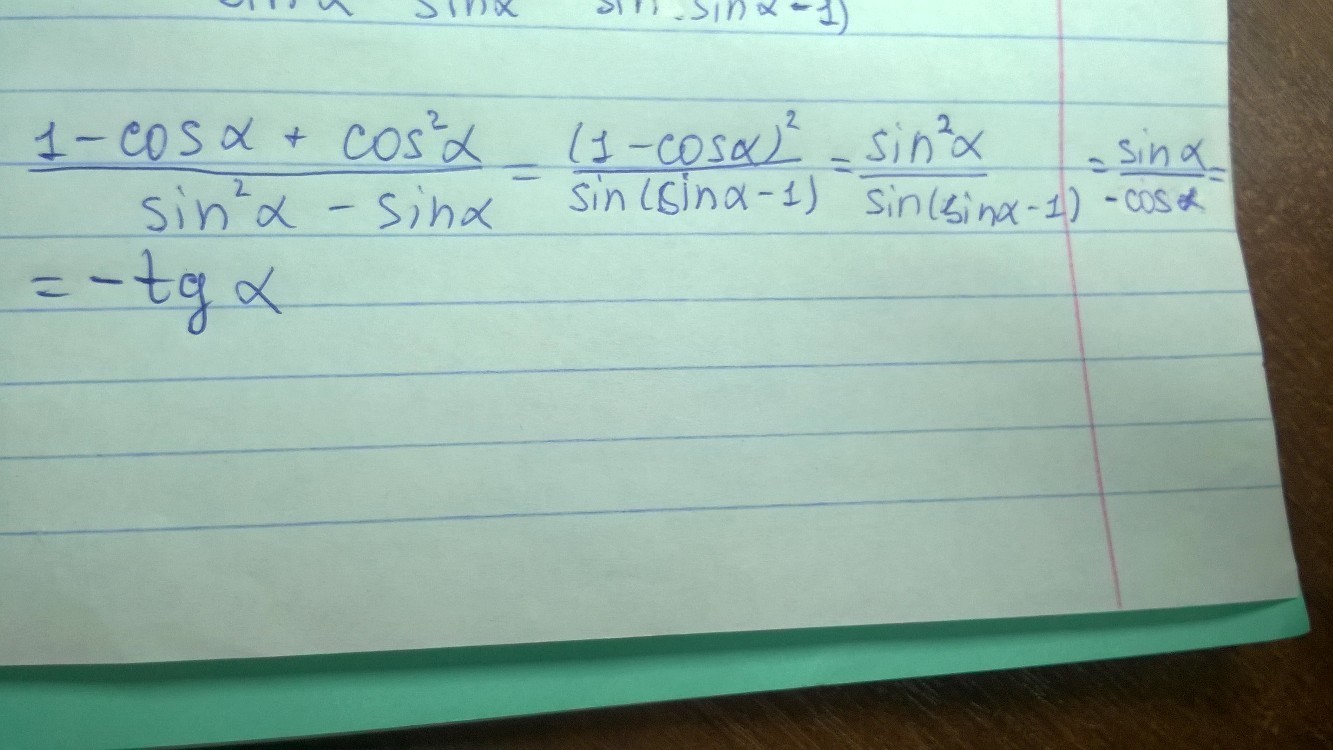 sinα sin . sinα - 1)
1 - cosα + cos²α / sin²α - sinα = (1 - cosα)² / sin(sinα - 1) = sin²α / sin(sinα - 1) = sinα / -cosα =
= - tg α